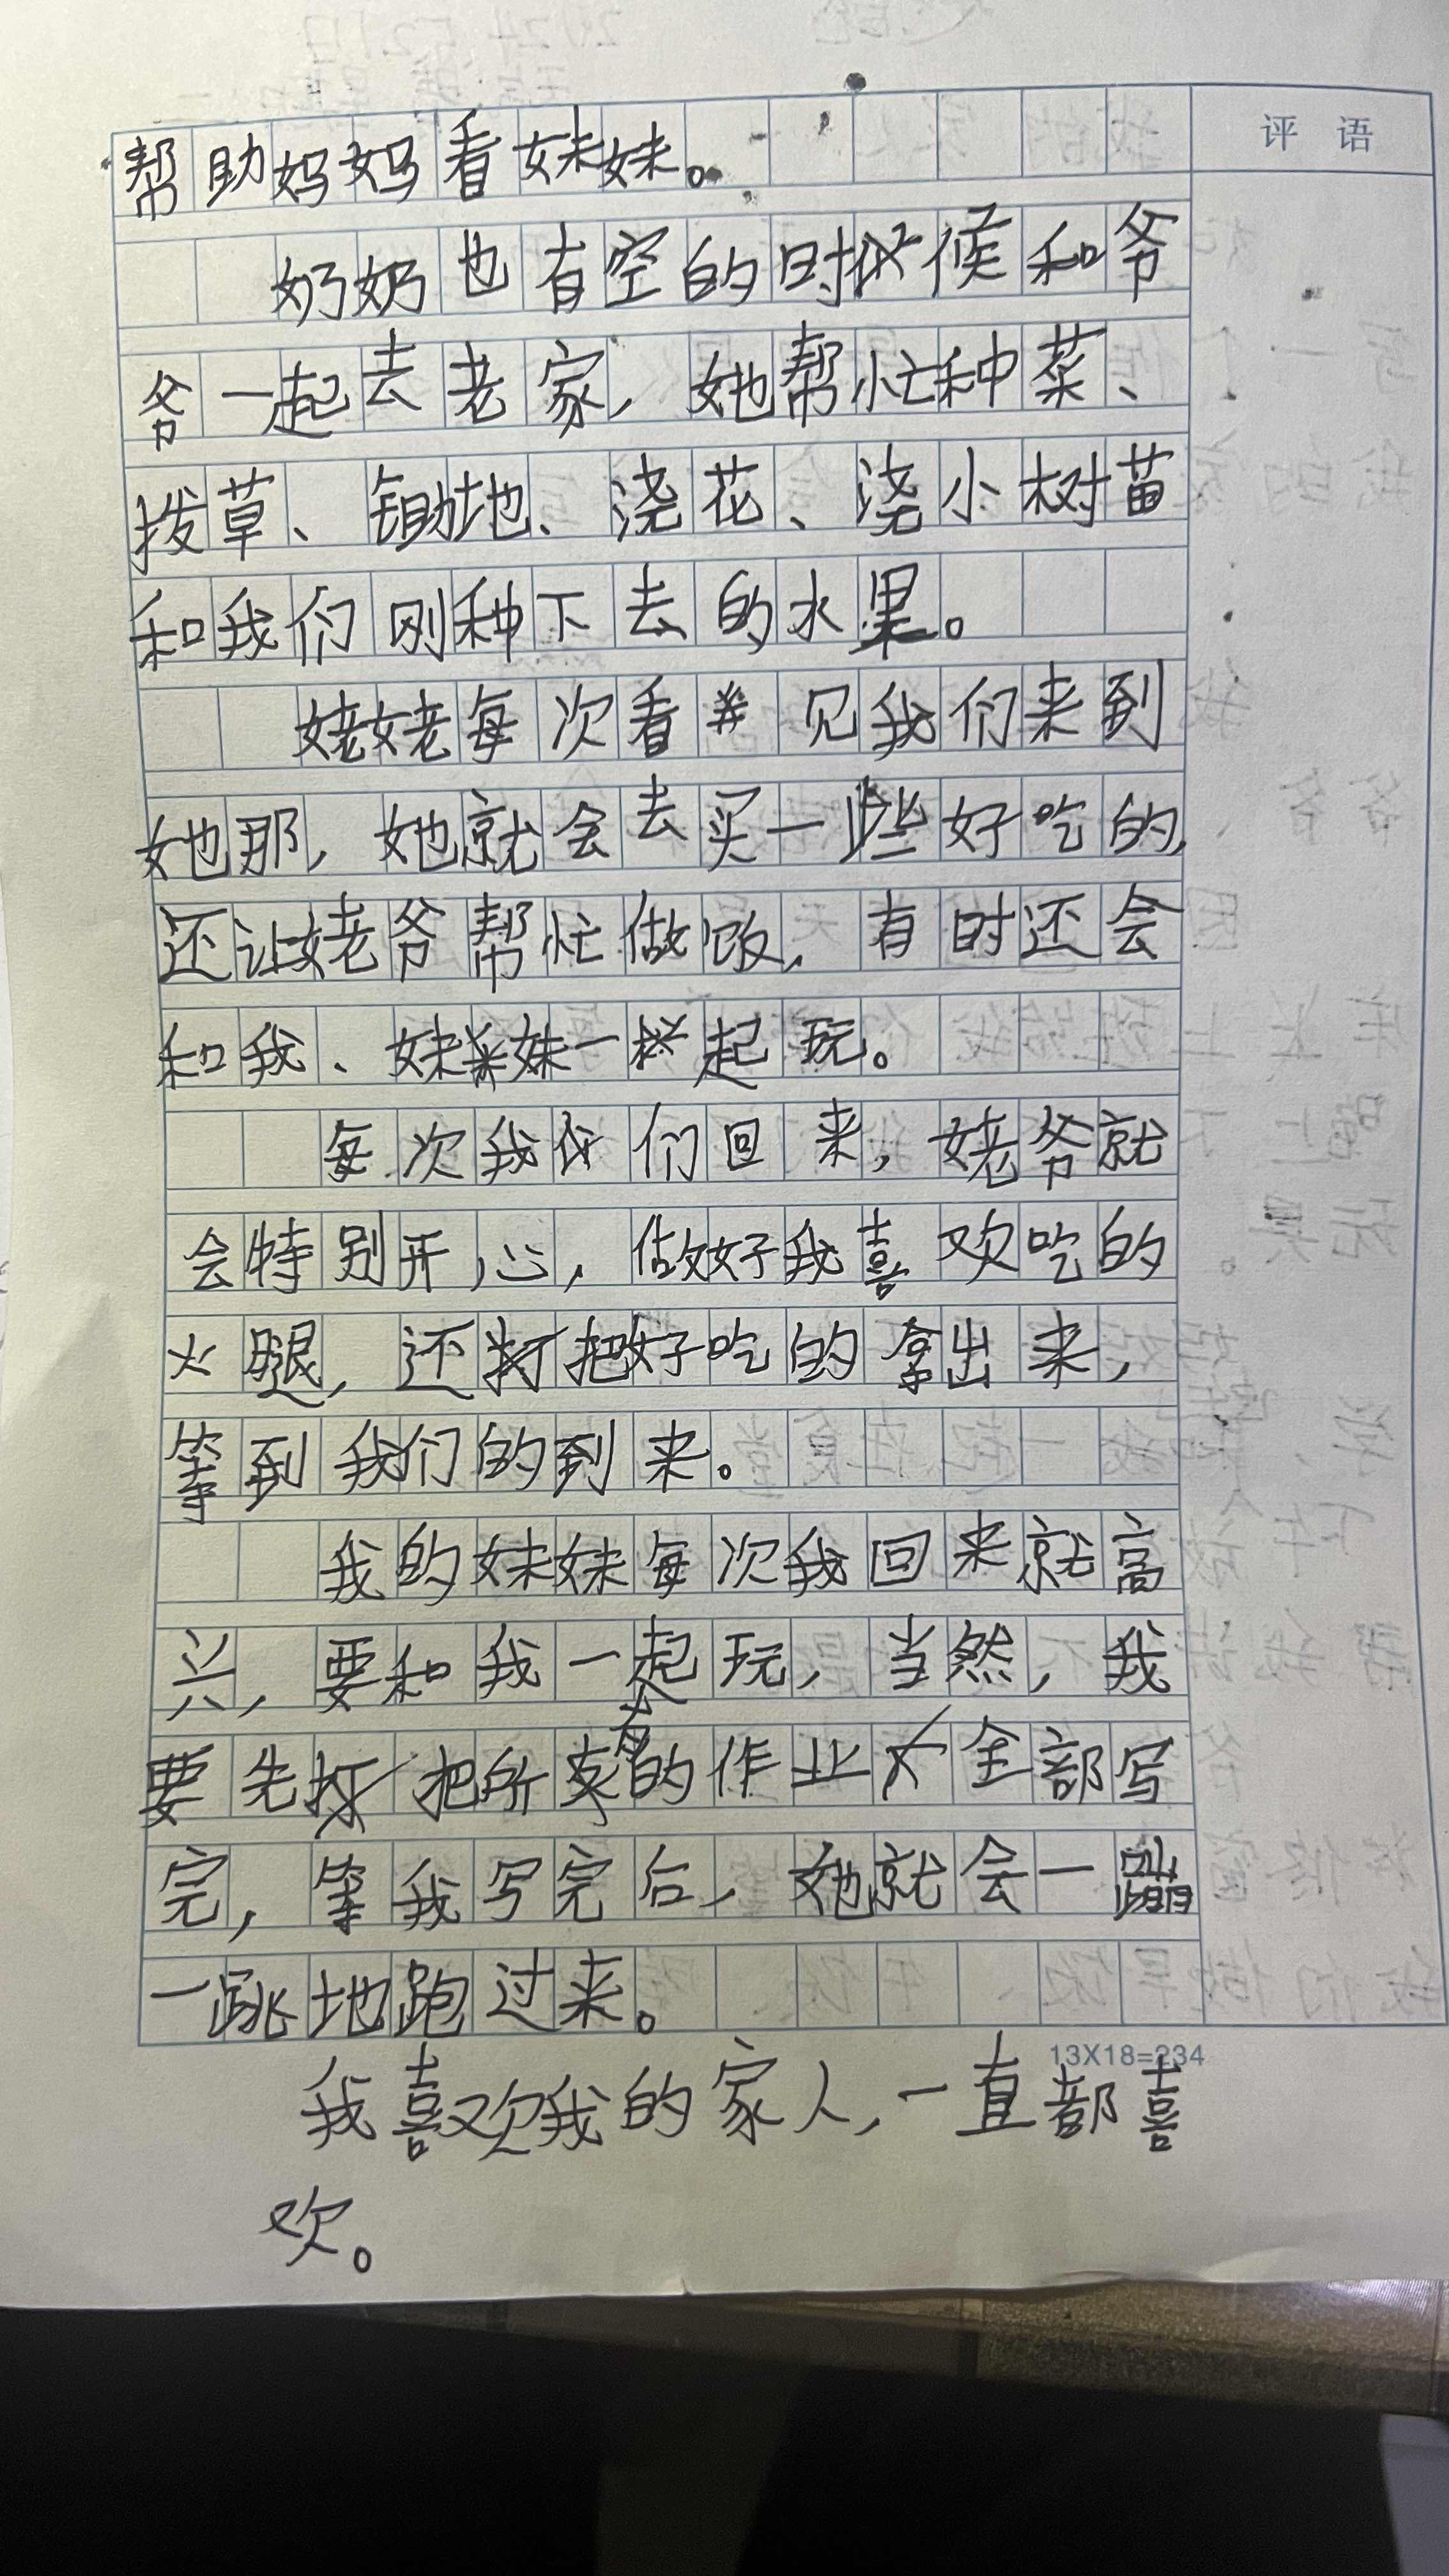 评语
帮助妈妈看妹妹。
奶奶也有空的时候和爷
爷一起去老家，她帮忙种菜、
拨草、锄地、浇花、浇小树苗
和我们刚种下去的水果。
姥姥每次看见我们来到
她那，她就会去买一些好吃的，
还让姥爷帮忙做饭，有时还会
和我、妹妹一起玩。
每次我们回来，姥爷就
会特别开心，做好我喜欢吃的
火腿，还把好吃的拿出来，
等到我们的到来。
我的妹妹每次我回来就高
兴，要和我一起玩，当然，我
要先把所有的作业全部写
完，等我写完后，她就会一蹦
一跳地跑过来。
13X18=234
我喜欢我的家人，一直都喜
欢。